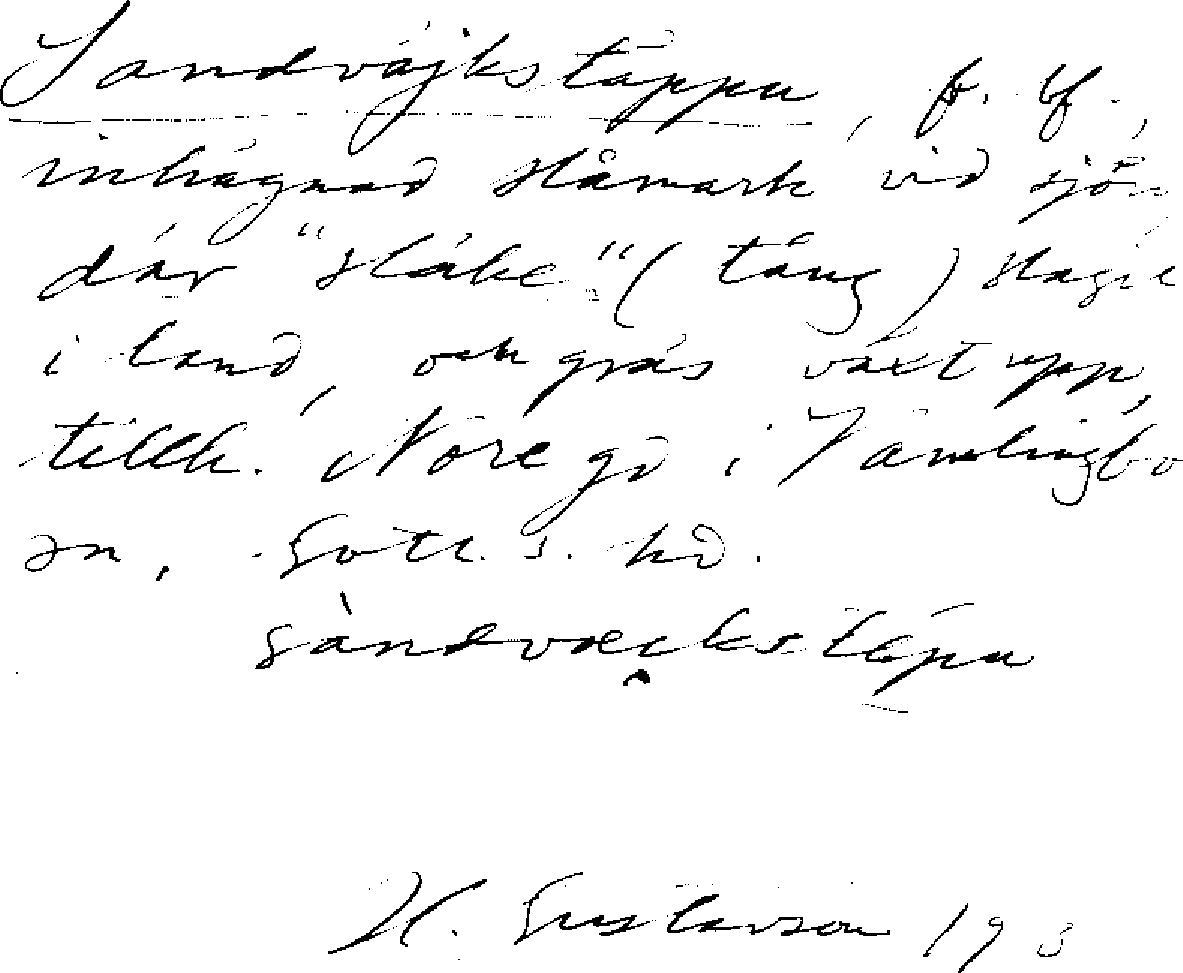 Sandväjkstäppu, f. bf.,
inhägnad slåmark vid sjön
där "släke" (tång) slagit
i land, och gräs växt upp,
tillh. Nore gd i Vamlingbo
sn, Gotl. s. hd.
sàndvæikstɛ́pu
H. Gustavson 193